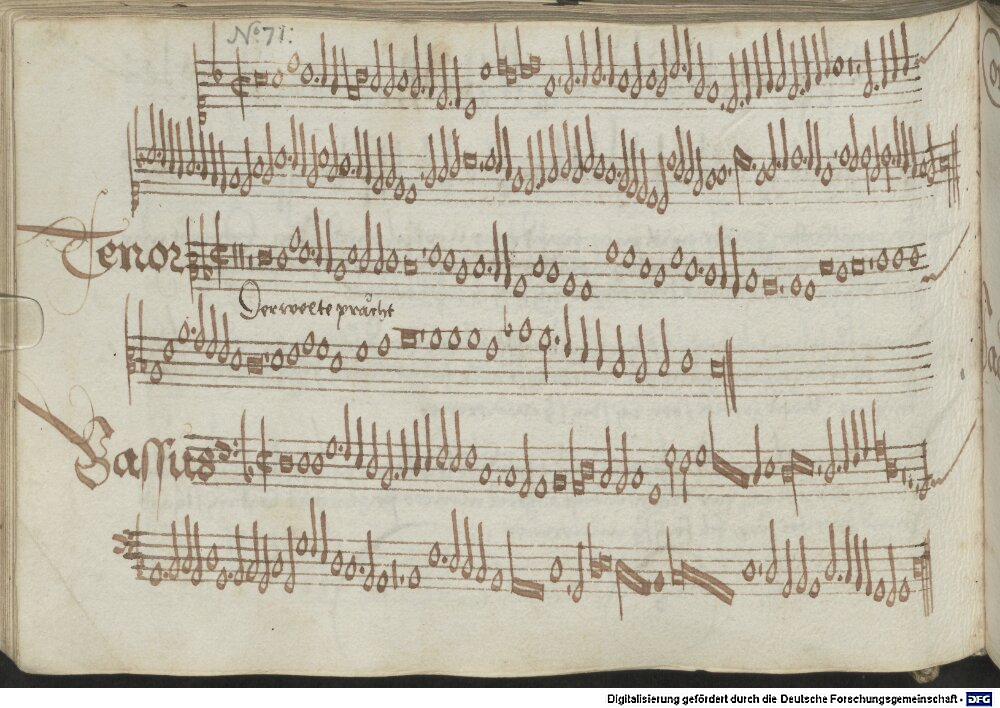 No 71.
Tenor
Der welte pracht
Bassus
Digitalisierung gefördert durch die Deutsche Forschungsgemeinschaft - DFG